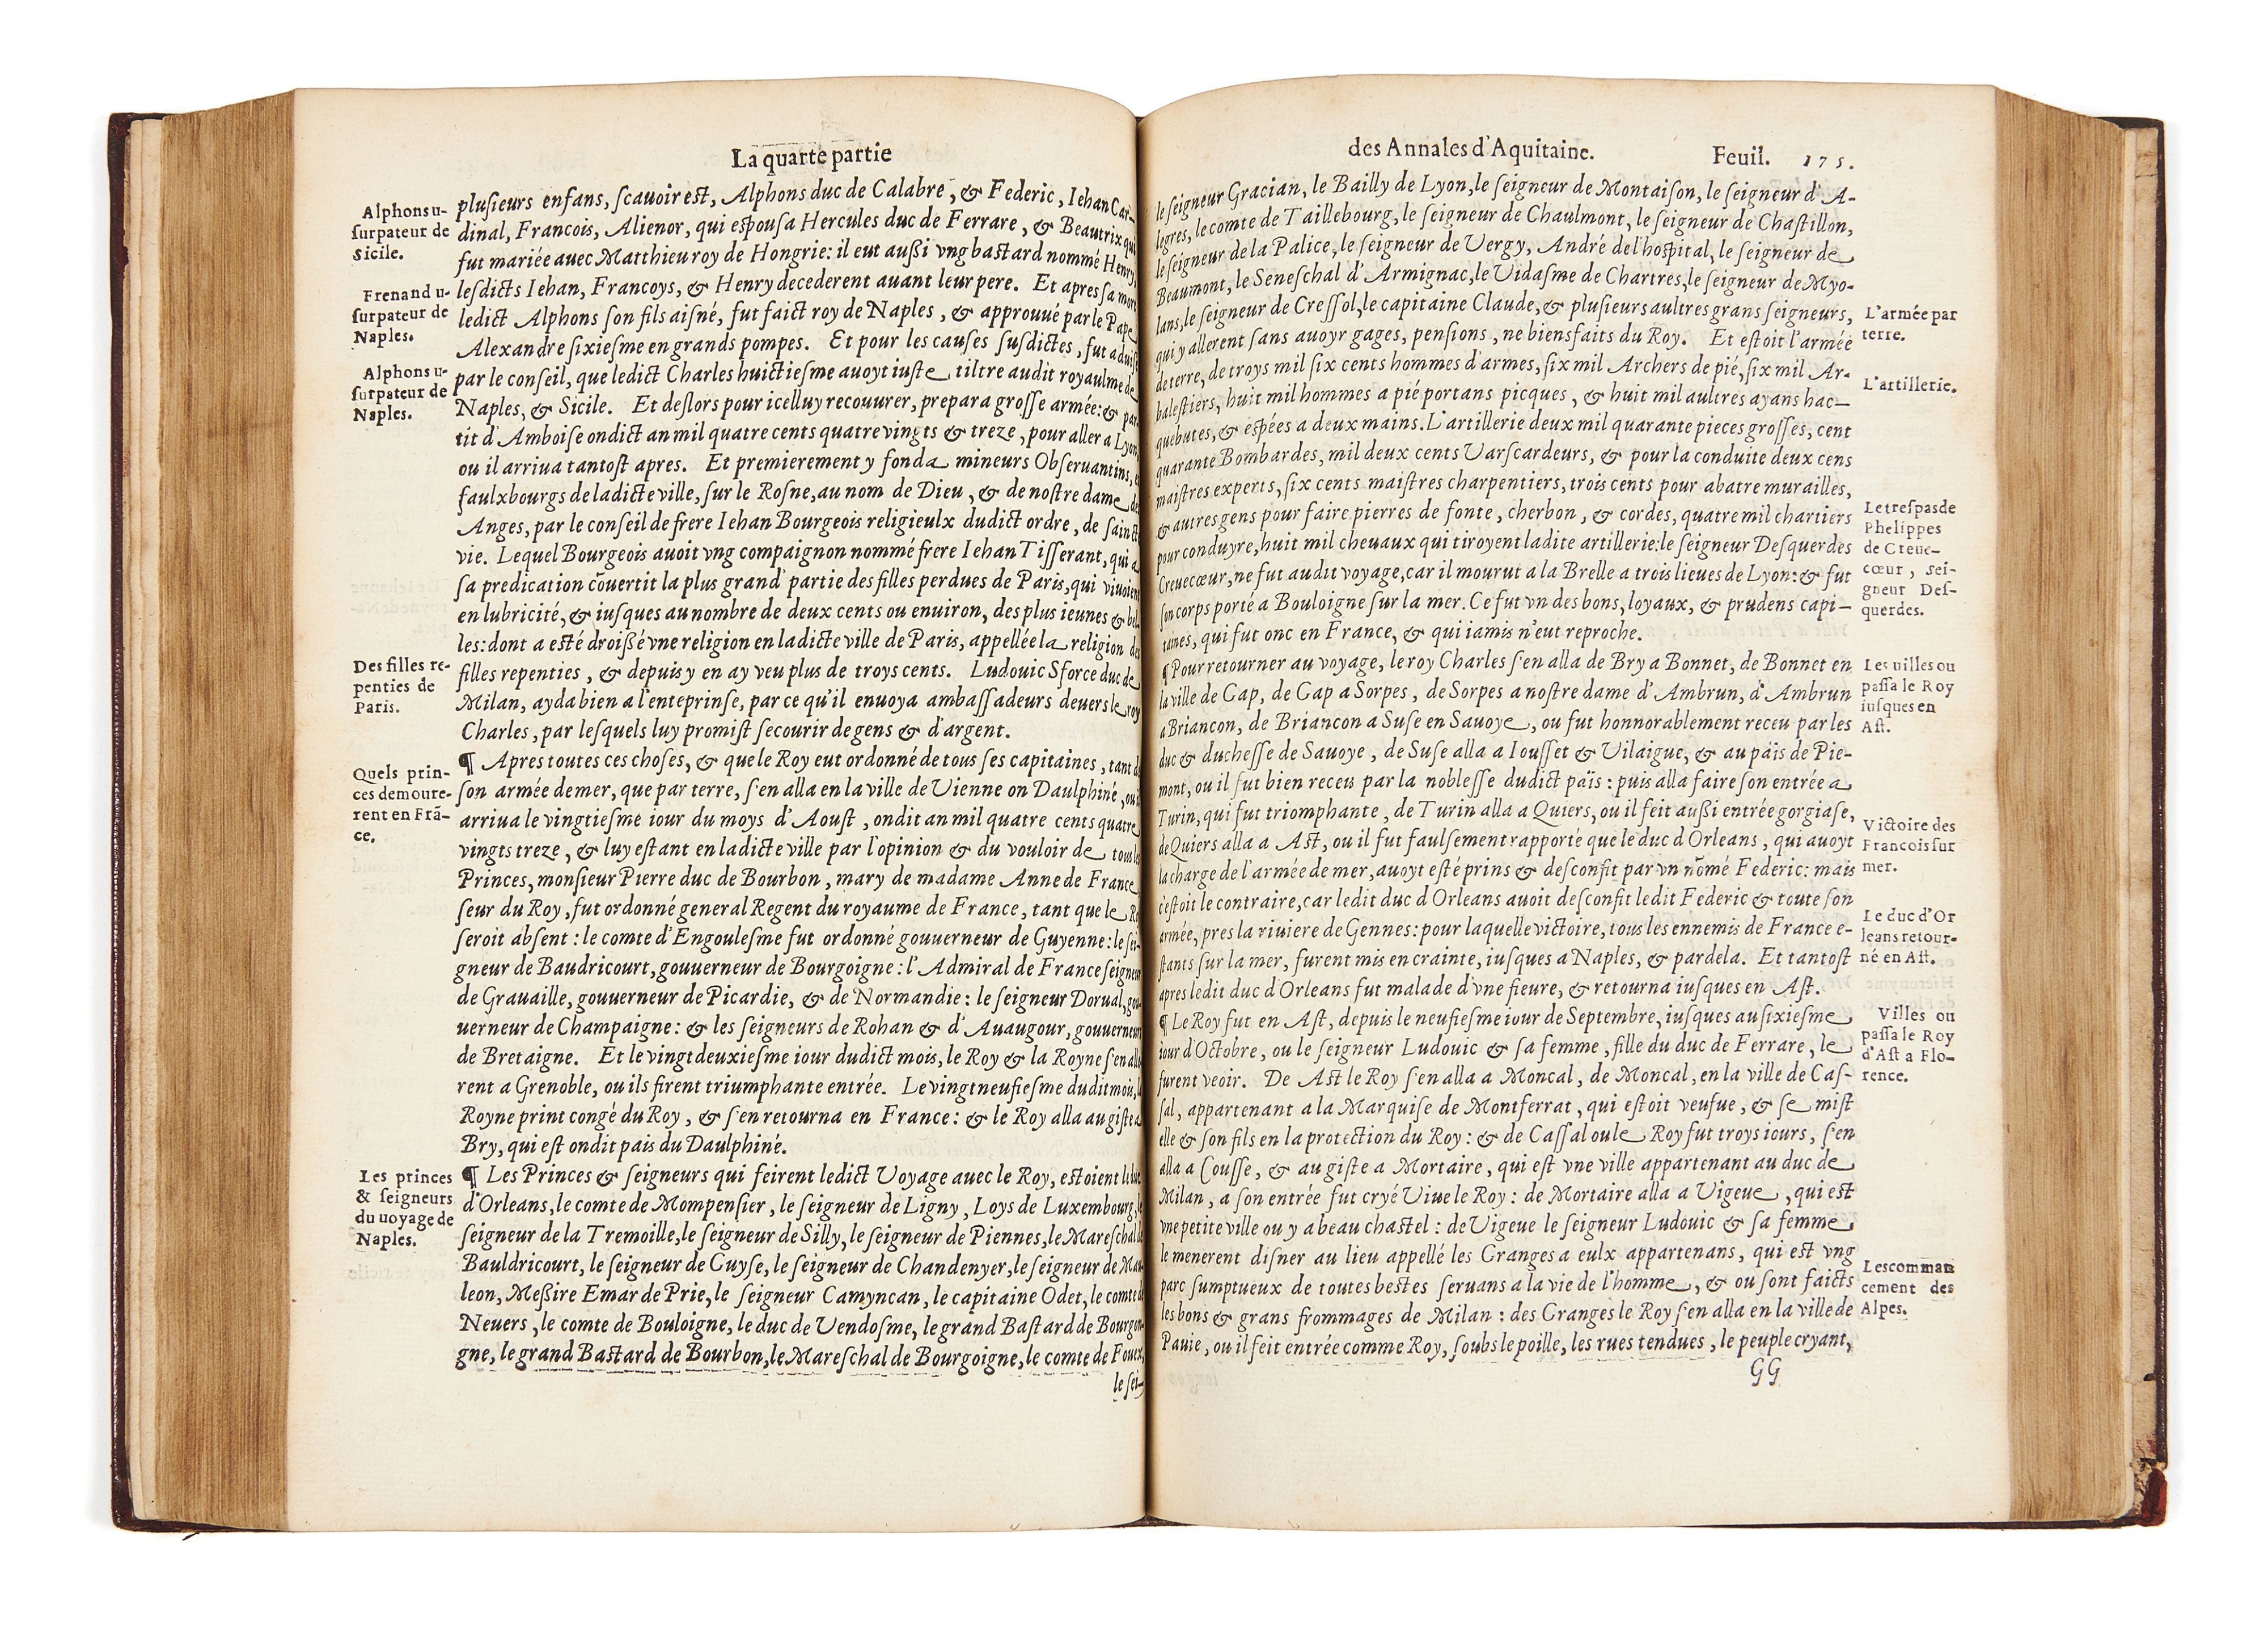 La quarte partie
Alphons u-
ſurpateur de
Sicile.
Frenand u-
ſurpateur de
Naples.
Alphons u-
ſurpateur de
Naples.
Des filles re-
penties de
Paris.
Quels prin-
ces demoure-
rent en Frã-
ce.
Les princes
& ſeigneurs
du uoyage de
Naples.
pluſieurs enfans, ſcauoir eſt, Alphons duc de Calabre, & Federic, Iehan Car-
dinal, Francois, Alienor, qui eſpouſa Hercules duc de Ferrare, & Beautrix qui
fut mariée auec Matthieu roy de Hongrie: il eut außi vng baſtard nommé Henry,
leſdicts Iehan, Francoys, & Henry decederent auant leur pere. Et apres ſa mort
ledict Alphons ſon fils aiſné, fut faict roy de Naples, & approuué par le Pape
Alexandre ſixieſme en grands pompes. Et pour les cauſes ſuſdictes, fut aduiſé
par le conſeil, que ledict Charles huictieſme auoyt iuſte tiltre audit royaulme de
Naples, & Sicile. Et deſlors pour icelluy recouurer, prepara groſſe armée: & par-
tit d'Amboiſe ondict an mil quatre cents quatre vingts & treze, pour aller a Lyon,
ou il arriua tantoſt apres. Et premierement y fonda mineurs Obſeruantins,
faulxbourgs de ladicte ville, ſur le Roſne, au nom de Dieu, & de noſtre dame des
Anges, par le conſeil de frere Iehan Bourgeois religieulx dudict ordre, de ſaincte
vie. Lequel Bourgeois auoit vng compaignon nommé frere Iehan Tiſſerant, qui a
ſa predication cõuertit la plus grand' partie des filles perdues de Paris, qui viuoient
en lubricité, & iuſques au nombre de deux cents ou enuiron, des plus ieunes & bel-
les: dont a eſté droißé vne religion en ladicte ville de Paris, appellée la religion des
filles repenties, & depuis y en ay veu plus de troys cents. Ludouic Sforce duc de
Milan, ayda bien a l'enteprinſe, par ce qu'il enuoya ambaſſadeurs deuers le roy
Charles, par leſquels luy promiſt ſecourir de gens & d'argent.
¶ Apres toutes ces choſes, & que le Roy eut ordonné de tous ſes capitaines, tant de
ſon armée de mer, que par terre, ſ'en alla en la ville de Vienne on Daulphiné, ou il
arriua le vingtieſme iour du moys d'Aouſt, ondit an mil quatre cents quatre
vingts treze, & luy eſtant en ladicte ville par l'opinion & du vouloir de tous les
Princes, monſieur Pierre duc de Bourbon, mary de madame Anne de France
ſeur du Roy, fut ordonné general Regent du royaume de France, tant que le Roy
ſeroit abſent: le comte d'Engouleſme fut ordonné gouuerneur de Guyenne: le ſei-
gneur de Baudricourt, gouuerneur de Bourgoigne: l'Admiral de France ſeigneur
de Grauaille, gouuerneur de Picardie, & de Normandie: le ſeigneur Dorual, gou-
uerneur de Champaigne: & les ſeigneurs de Rohan & d'Auaugour, gouuerneurs
de Bretaigne. Et le vingtdeuxieſme iour dudict mois, le Roy & la Royne ſ'en alle-
rent a Grenoble, ou ils firent triumphante entrée. Le vingtneufieſme dudit mois, la
Royne print congé du Roy, & ſ'en retourna en France: & le Roy alla au giſte a
Bry, qui eſt ondit pais du Daulphiné.
¶ Les Princes & ſeigneurs qui feirent ledict Voyage auec le Roy, eſtoient le duc
d'Orleans, le comte de Mompenſier, le ſeigneur de Ligny, Loys de Luxembourg, le
ſeigneur de la Tremoille, le ſeigneur de Silly, le ſeigneur de Piennes, le Mareſchal de
Bauldricourt, le ſeigneur de Guyſe, le ſeigneur de Chandenyer, le ſeigneur de Mau-
leon, Meßire Emar de Prie, le ſeigneur Camyncan, le capitaine Odet, le comte de
Neuers, le comte de Bouloigne, le duc de Vendoſme, le grand Baſtard de Bourgon-
gne, le grand Baſtard de Bourbon, le Mareſchal de Bourgoigne, le comte de Fouex,
le ſei-
des Annales d'Aquitaine. Feuil. 175.
le ſeigneur Gracian, le Bailly de Lyon, le ſeigneur de Montaiſon, le ſeigneur d'A-
legres, le comte de Taillebourg, le ſeigneur de Chaulmont, le ſeigneur de Chaſtillon,
le ſeigneur de la Palice, le ſeigneur de Vergy, André de l'hoſpital, le ſeigneur de
Beaumont, le Seneſchal d'Armignac, le Vidaſme de Chartres, le ſeigneur de Myo-
lans, le ſeigneur de Creſſol, le capitaine Claude, & pluſieurs aultres grans ſeigneurs,
qui y allerent ſans auoyr gages, penſions, ne biensfaits du Roy. Et eſtoit l'armée
de terre, de troys mil ſix cents hommes d'armes, ſix mil Archers de pié, ſix mil Ar-
baleſtiers, huit mil hommes a pié portans picques, & huit mil aultres ayans hac-
quebutes, & eſpées a deux mains. L'artillerie deux mil quarante pieces groſſes, cent
quarante Bombardes, mil deux cents Varſcardeurs, & pour la conduite deux cens
maiſtres experts, ſix cents maiſtres charpentiers, trois cents pour abatre murailles,
& autres gens pour faire pierres de fonte, cherbon, & cordes, quatre mil chartiers
pour conduyre, huit mil cheuaux qui tiroyent ladite artillerie: le ſeigneur Deſquerdes
Creuecœur, ne fut audit voyage, car il mourut a la Brelle a trois lieues de Lyon: & fut
ſon corps porté a Bouloigne ſur la mer. Ce fut vn des bons, loyaux, & prudens capi-
taines, qui fut onc en France, & qui iamis n'eut reproche.
¶ Pour retourner au voyage, le roy Charles ſ'en alla de Bry a Bonnet, de Bonnet en
la ville de Gap, de Gap a Sorpes, de Sorpes a noſtre dame d'Ambrun, d'Ambrun
a Briancon, de Briancon a Suſe en Sauoye, ou fut honnorablement receu par les
duc & ducheſſe de Sauoye, de Suſe alla a Iouſſet & Vilaigue, & au päis de Pie-
mont, ou il fut bien receu par la nobleſſe dudict païs: puis alla faire ſon entrée a
Turin, qui fut triomphante, de Turin alla a Quiers, ou il feit außi entrée gorgiaſe,
de Quiers alla a Aſt, ou il fut faulſement rapporté que le duc d'Orleans, qui auoyt
la charge de l'armée de mer, auoyt eſté prins & deſconfit par vn nõmé Federic: mais
c'eſtoit le contraire, car ledit duc d'Orleans auoit deſconfit ledit Federic & toute ſon
armée, pres la riuiere de Gennes: pour laquelle victoire, tous les ennemis de France e-
ſtants ſur la mer, furent mis en crainte, iuſques a Naples, & pardela. Et tantoſt
apres ledit duc d'Orleans fut malade d'vne fieure, & retourna iuſques en Aſt.
¶ Le Roy fut en Aſt, depuis le neufieſme iour de Septembre, iuſques au ſixieſme
iour d'Octobre, ou le ſeigneur Ludouic & ſa femme, fille du duc de Ferrare, le
furent veoir. De Aſt le Roy ſ'en alla a Moncal, de Moncal, en la ville de Caſ-
ſal, appartenant a la Marquiſe de Montferrat, qui eſtoit veufue, & ſe miſt
elle & ſon fils en la protection du Roy: & de Caſſal ou le Roy fut troys iours, ſ'en
alla a Couſſe, & au giſte a Mortaire, qui eſt vne ville appartenant au duc de
Milan, a ſon entrée fut cryé Viue le Roy: de Mortaire alla a Vigeue, qui eſt
vne petite ville ou y a beau chaſtel: de Vigeue le ſeigneur Ludouic & ſa femme
le menerent diſner au lieu appellé les Granges a eulx appartenans, qui eſt vng
parc ſumptueux de toutes beſtes ſeruans a la vie de l'homme, & ou ſont faicts
les bons & grans frommages de Milan: des Granges le Roy ſ'en alla en la ville de
Pauie, ou il feit entrée comme Roy, ſoubs le poille, les rues tendues, le peuple cryant,
GG
L'armée par
terre.
L'artillerie.
Le treſpas de
Phelippes
de Creue-
cœur, sei-
gneur Deſ-
querdes.
Les uilles ou
paſſa le Roy
iuſques en
Aſt.
Victoire des
Francois ſur
mer.
Le duc d'Or
leans retour-
né en Aſt.
Villes ou
paſſa le Roy
d'Aſt a Flo-
rence.
Les comman
cement des
Alpes.